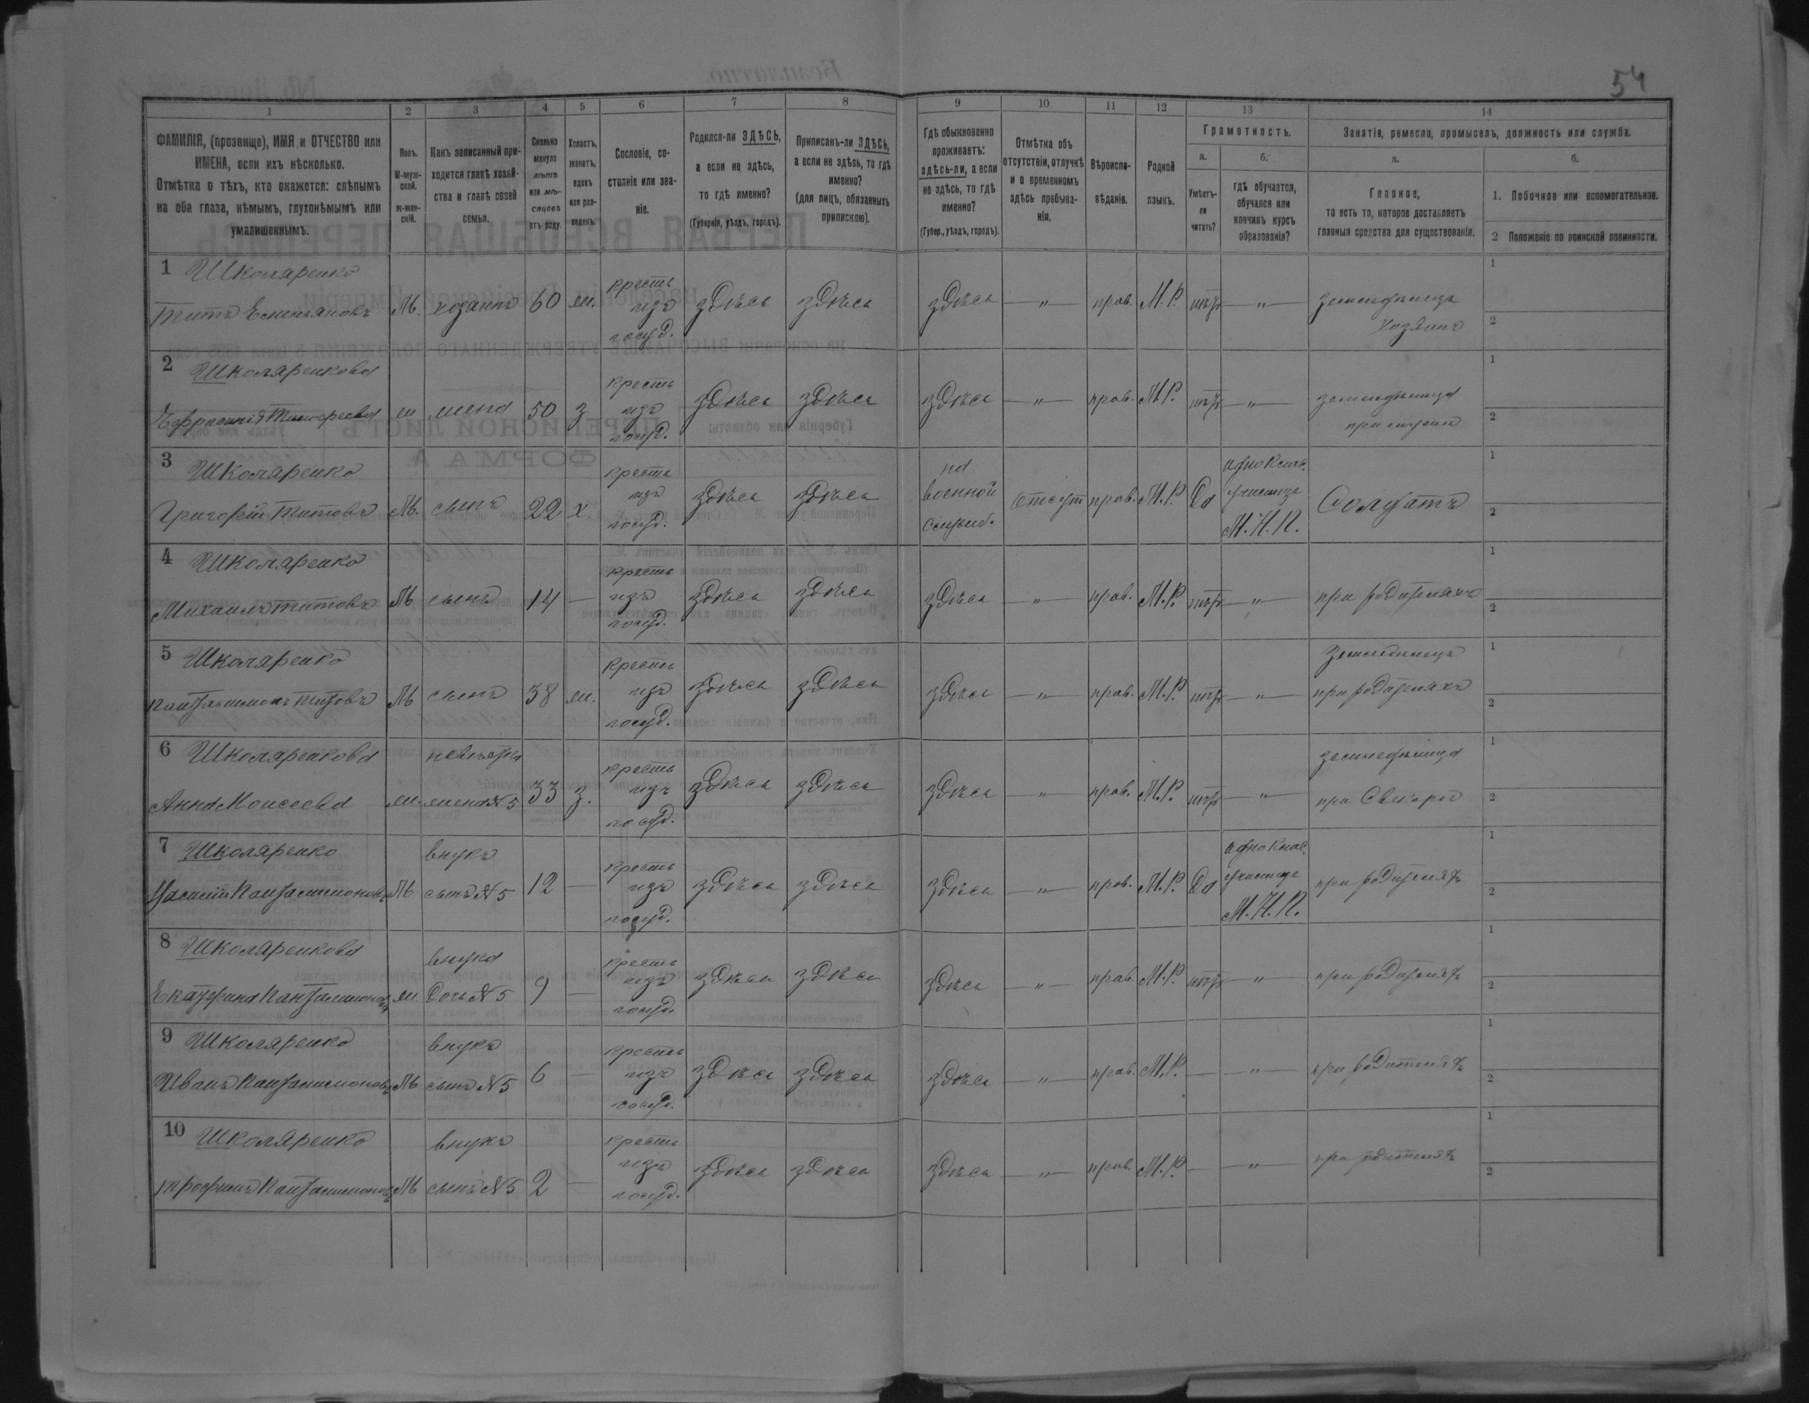 54
1
2
3
4
5
6
7
8
9
10
11
12
13
14
ФАМИЛІЯ, (прозвище), ИМЯ и ОТЧЕСТВО или
ИМЕНА, если ихъ нѣсколько.
Отмѣтка о тѣхъ, кто окажется: слѣпымъ
на оба глаза, нѣмымъ, глухонѣмымъ или
умалишеннымъ.
Полъ.
М-муж-
ской.
Ж-жен-
скій.
Какъ записанный при-
ходится главѣ хозяй-
ства и главѣ своей
семьи.
Сколько
минуло
лѣтъ
или мѣ-
сяцевъ
отъ роду.
Холостъ,
женатъ,
вдовъ
или раз-
веденъ.
Сословіе, со-
стояніе или зва-
ніе.
Родился-ли ЗДѢСЬ,
а если не здѣсь,
то гдѣ именно?
(Губернія, уѣздъ, городъ).
Приписанъ-ли ЗДѢСЬ,
а если не здѣсь, то гдѣ
именно?
(для лицъ, обязанныхъ
припискою).
Гдѣ обыкновенно
проживаетъ:
здѣсь-ли, а если
не здѣсь, то гдѣ
именно?
(Губер., уѣздъ, городъ).
Отмѣтка объ
отсутствіи, отлучкѣ
и о временномъ
здѣсь пребыва-
ніи.
Вѣроиспо-
вѣданіе.
Родной
языкъ.
Грамотность.
а.
Умѣетъ-
ли
читать?
б.
гдѣ обучается,
обучался или
кончилъ курсъ
образованія?
Занятіе, ремесло, промыселъ, должность или служба.
а.
Главное,
то есть то, которое доставляетъ
главныя средства для существованія.
б.
1. Побочное или вспомогательное.
2 Положеніе по воинской повинности.
1 Школяренко
Титъ Емельяновъ М. хозяинъ 60 ж. крестъ изъ госуд. здѣсь здѣсь здѣсь — " — прав. М.Р. нѣтъ — " — земледѣлецъ хозяинъ
1
2
2 Школяренкова
ж жена 50 з крестъ изъ госуд. здѣсь здѣсь здѣсь — " — прав. М.Р. нѣтъ — " — земледѣлица при мужѣ
1
2
3 Школяренко
Григорій Титовъ М. сынъ 22 х. крестъ изъ госуд. здѣсь здѣсь на военной служб. отсут прав. М.Р. Да однокласс. училище М.Н.П. Солдатъ
1
2
4 Школяренко
Михаилъ Титовъ М сынъ 14 — крестъ изъ госуд. здѣсь здѣсь здѣсь — " — прав. М.Р. нѣтъ — " — при родителяхъ
1
2
5 Школяренко
Пантелимонъ Титовъ М сынъ 38 ж. крестъ изъ госуд. здѣсь здѣсь здѣсь — " — прав. М.Р. нѣтъ — " — земледѣлецъ при родителяхъ
1
2
6 Школяренкова
Анна Моисеева ж. невѣстка жена №5 33 з. крестъ изъ госуд. здѣсь здѣсь здѣсь — " — прав. М.Р. нѣтъ — " — земледѣлица при свекорѣ
1
2
7 Школяренко
Пантелимоновъ М внукъ сынъ №5 12 — крестъ изъ госуд. здѣсь здѣсь здѣсь — " — прав. М.Р. Да однокласс. училище М.Н.П. при родителях
1
2
8 Школяренкова
Екатерина Пантелимонова ж. внука дочь №5 9 — крестъ изъ госуд. здѣсь здѣсь здѣсь — " — прав. М.Р. нѣтъ — " — при родителях
1
2
9 Школяренко
Иванъ Пантелимоновъ М внукъ сынъ №5 6 — крестъ изъ госуд. здѣсь здѣсь здѣсь — " — прав. М.Р. — — " — при родителях
1
2
10 Школяренко
Трофимъ Пантелимоновъ М внукъ сынъ №5 2 — крестъ изъ госуд. здѣсь здѣсь здѣсь — " — прав. М.Р. — — " — при родителях
1
2